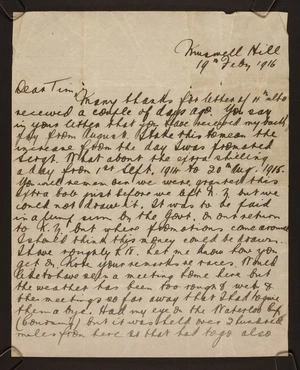 Muswell Hill
19th Feby 1916
Dear Tim,
Many thanks for letter of 11th ulto
received a couple of days ago. You say
in your letter that you have back
pay from August. I take this to mean the
increase from the day I was promoted
Sergt. What about the extra shilling
a day from 1st Sept. 1914 to 20th Aug. 1915.
You will remember we were granted this
extra bob just before we left N.Z. but we
could not draw it. It was to be paid
in a lump sum by the Govt. on our return
to N.Z. but where promotions come around
I should think this money could be drawn.
I have roughly £ Let me know how you
get on. Note your remarks re races. Would
like to have seen a meeting home here but
the weather has been too rough & wet &
the meetings so far away that I had to give
them a bye. Had my eye on the Waterloo Cup
(Coursing) but it was held over 2 hundred
miles from here so that had to go also